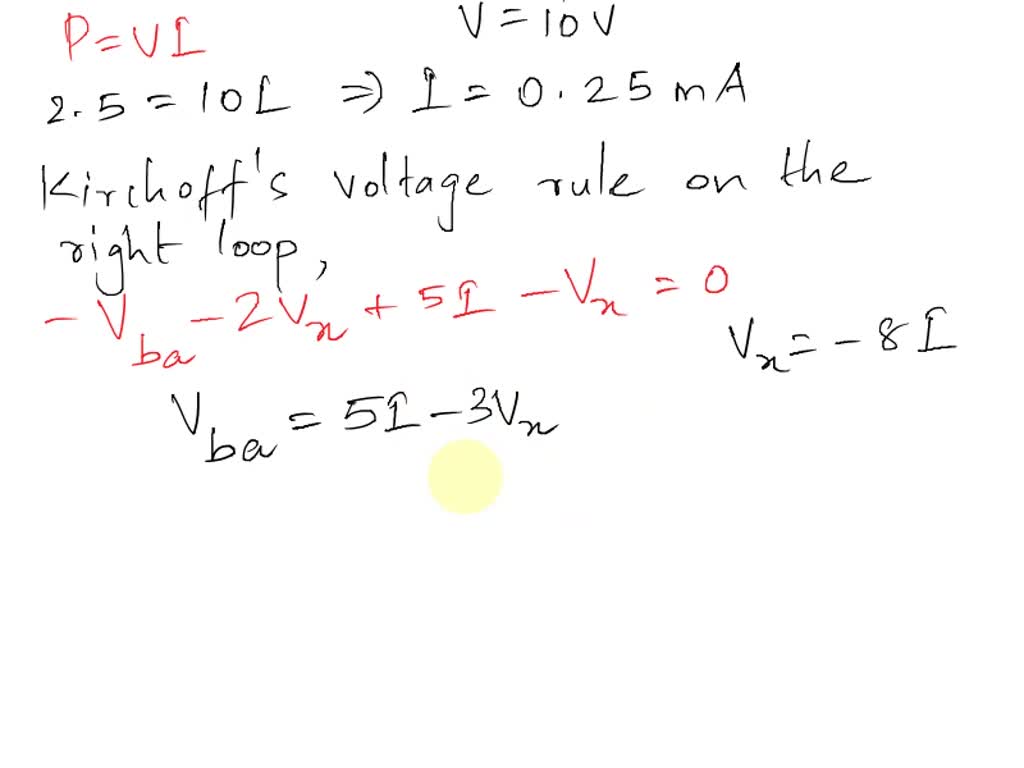 P=VI V=10V
2.5=10I ⇒ I=0.25mA
Kirchoff's voltage rule on the
right loop,
-V_ba -2V_x +5I -V_x =0
V_x=-8I
V_ba =5I-3V_x